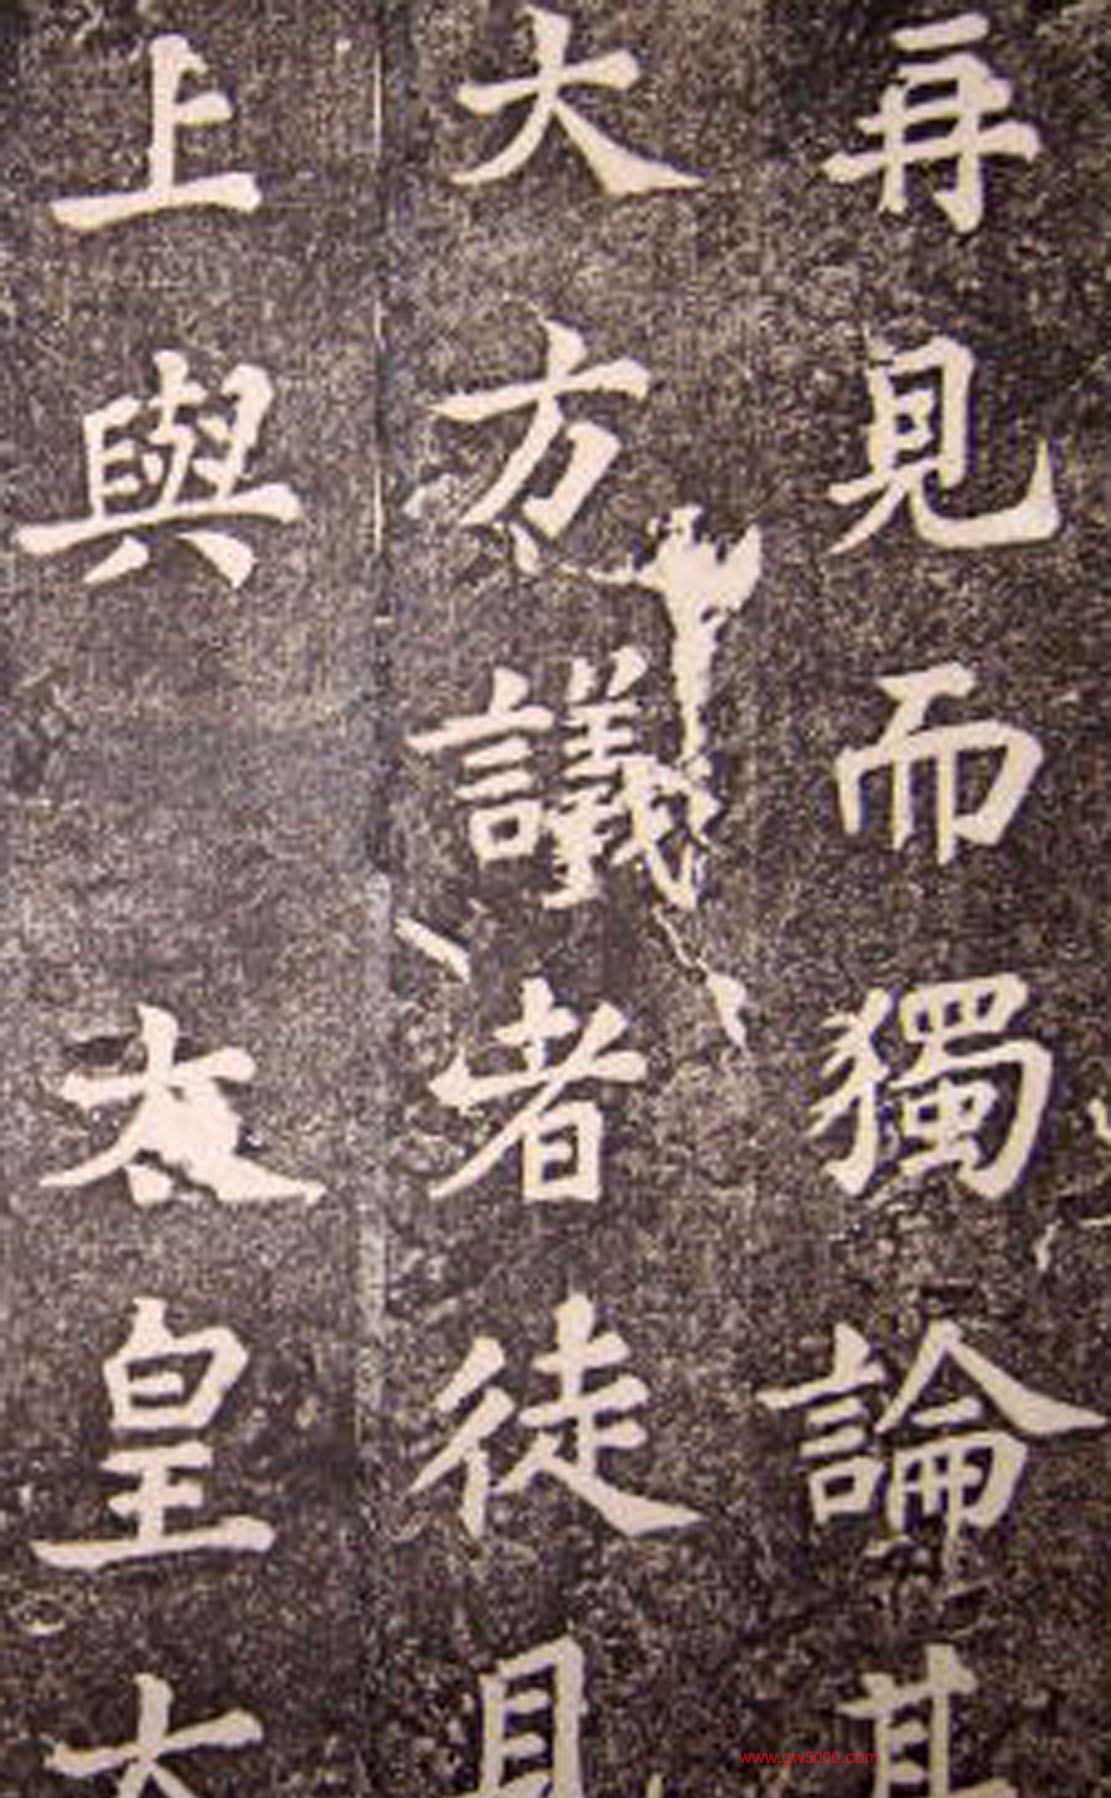 再見而獨論其
大方議者徒見
上與 太皇太
www.gw5000.com